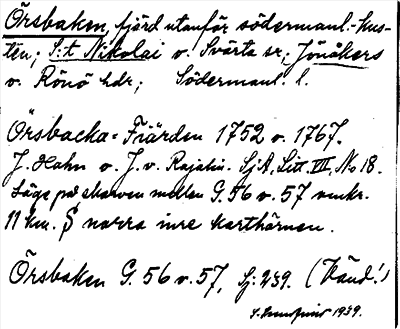 Örsbaken, fjärd utanför södermanl. kus-
ten; S:t Nikolai o. Svärta sr; Jönåkers
o. Rönö hdr; Södermanl. l.
Örsbacka-Fiärden 1752 o. 1767.
J. Hahn o. J. v. Rajalin. SjA, Litt. VII, No 18.
Läge på skarven mellan G. 56 o. 57 omkr.
11 km. S norra inre karthörnen.
Örsbaken G. 56 o. 57, Sj: 239. (Vänd!)
1939.